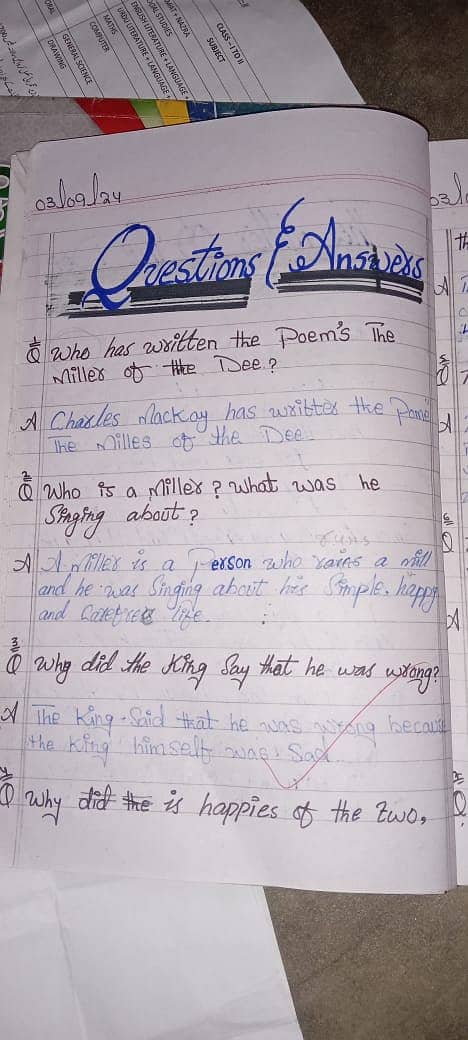 CLASS - I TO II
SUBJECT
NAZRA
SOCIAL STUDIES
ENGLISH LITERATURE + LANGUAGE
URDU LITERATURE + LANGUAGE
MATHS
COMPUTER
GENERAL SCIENCE
DRAWING
03/09/24
Questions & Answers
Q1 Who has written the Poem's The
Miller of the Dee?
A Charles Mackay has writter the Pome
The Milles of the Dee.
Q2 Who is a Miller? What was he
Singing about?
runs
A A Miller is a Person who rains a mill
and he was Singing about his Simple, happy
and Carefree life.
Q3 Why did the King Say that he was wrong?
A The King Said that he was wrong because
the King himself was Sad.
Q Why did the is happies of the two,